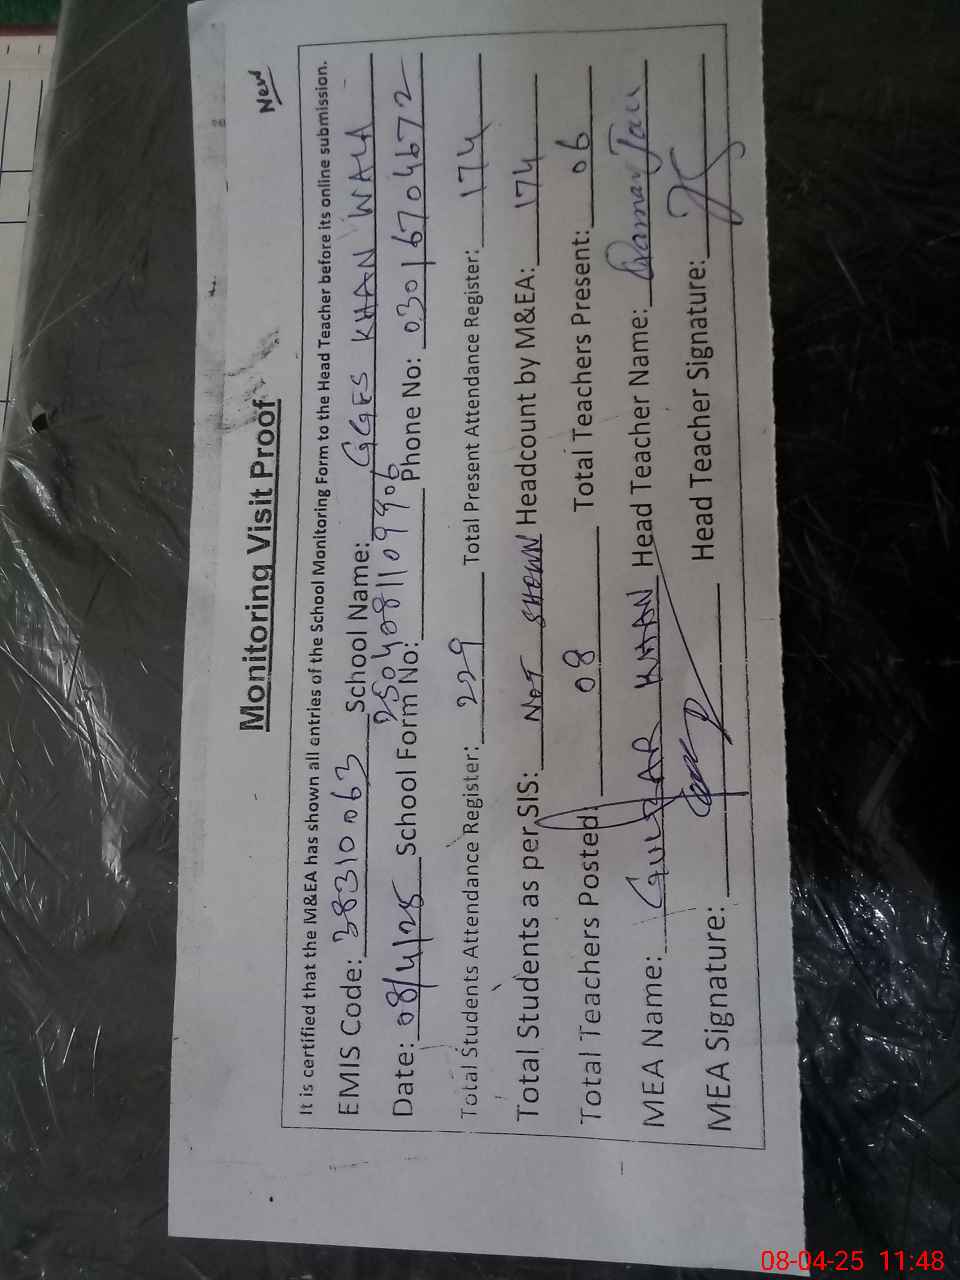 New
Monitoring Visit Proof
It is certified that the M&EA has shown all entries of the School Monitoring Form to the Head Teacher before its online submission.
EMIS Code: 38310063 School Name: GGES KHAN WALA
Date: 08/4/25 School Form No: 2504081109906 Phone No: 03016704672
Total Students Attendance Register: 229 Total Present Attendance Register: 174
Total Students as per SIS: NOT SHOWN Headcount by M&EA: 174
Total Teachers Posted: 08 Total Teachers Present: 06
MEA Name: GULZAR KHAN Head Teacher Name:
MEA Signature: Head Teacher Signature:
08-04-25 11:48